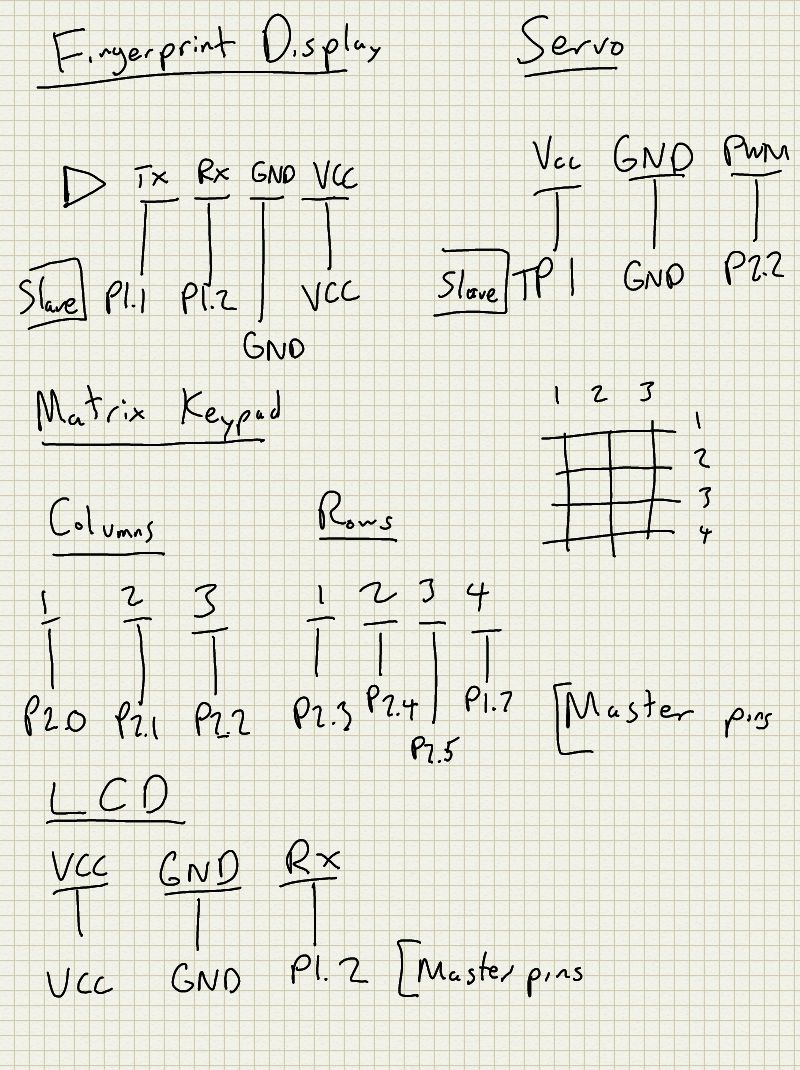 Fingerprint Display
Servo
Tx Rx GND VCC
Slave P1.1 P1.2 VCC
GND
Vcc GND PWM
Slave TP1 GND P2.2
Matrix Keypad
1 2 3
1
2
3
4
Columns
1 2 3
P2.0 P2.1 P2.2
Rows
1 2 3 4
P2.3 P2.4 P1.7
P2.5
Master pins
LCD
VCC GND Rx
VCC GND P1.2
Master pins